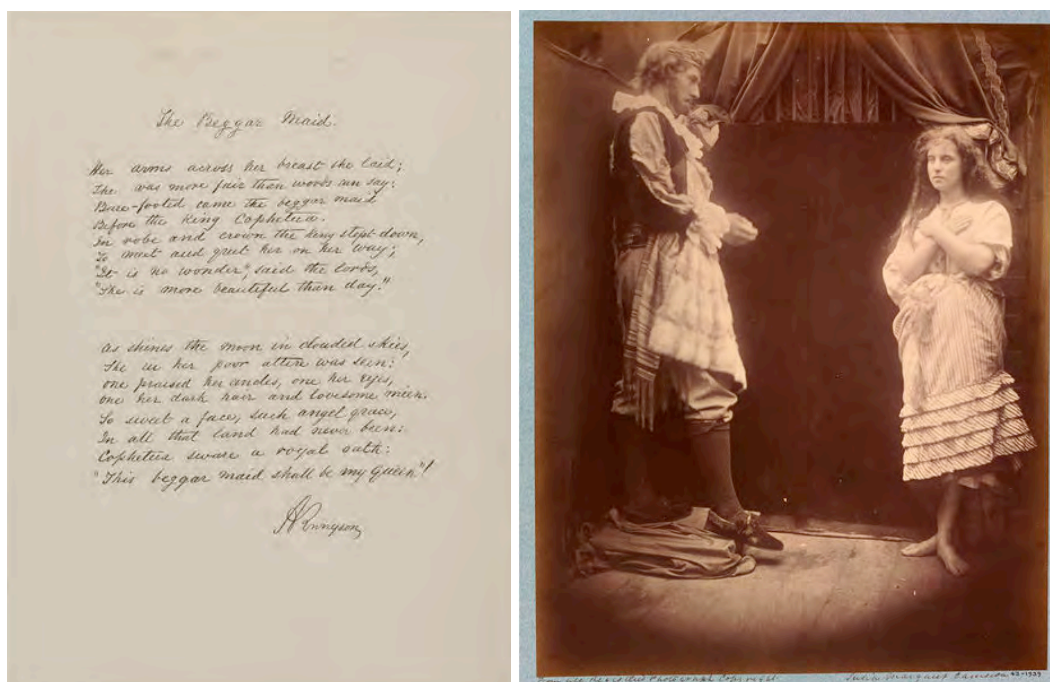 The Beggar Maid.
Her arms across her breast she laid;
She was more fair than words can say:
Bare-footed came the beggar maid
Before the King Cophetua.
In robe and crown the king stept down,
To meet and greet her on her way;
"It is no wonder", said the lords,
"She is more beautiful than day."
As shines the moon in clouded skies,
She in her poor attire was seen:
one praised her ancles, one her eyes,
one her dark hair and lovesome mien.
So sweet a face, such angel grace,
In all that land had never been:
Cophetua sware a royal oath:
"This beggar maid shall be my Queen"!
A Tennyson
From Life Registered Photograph Copyright
Julia Margaret Cameron 42-1939